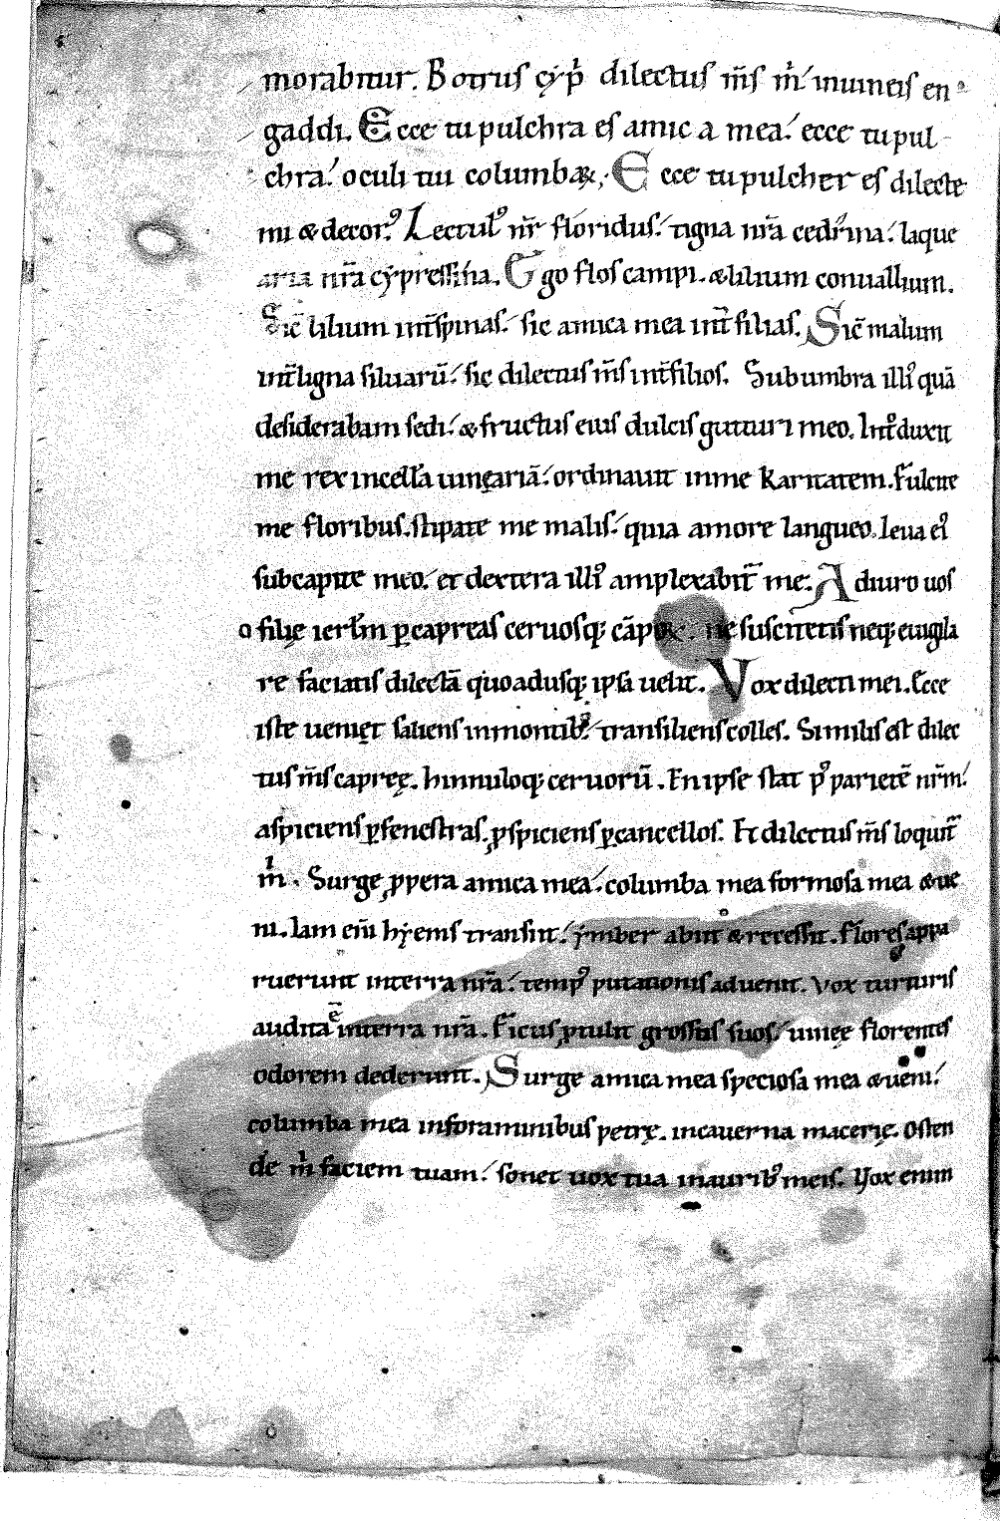 morabitur. Botrus cyp̄ dilectus m̄s m̄ inuineis en
gaddi. Ecce tu pulchra es amica mea. ecce tu pul
chra. oculi tui columbaꝝ. Ecce tu pulcher es dilecte
mi & decorꝰ. Lectulꝰ nr̄ floridus. tigna nr̄a cedrina. laque
aria nr̄a cypressina. Ego flos campi. & lilium conuallium.
Sic̄ lilium int̄ spinas. sic amica mea int̄ filias. Sic̄ malum
int̄ ligna siluarū. sic dilectus m̄s int̄ filios. Sub umbra illiꝰ quā
desiderabam sedi. & fructus eius dulcis gutturi meo. Introduxit
me rex in cellā uinęariā. ordinauit in me karitatem. Fulcite
me floribus. stipate me malis. quia amore langueo. leua eiꝰ
sub capite meo. et dextera illiꝰ amplexabit̄ me. Adiuro uos
o filię ierlm̄ ꝑ capreas ceruosq; cāpoꝝ. ne suscitetis neq; euigila
re faciatis dilectā quo adusq; ipsa uelit. Vox dilecti mei. Ecce
iste ueniet saliens in montibꝰ. transiliens colles. Similis est dilec
tus m̄s capreę. hinnuloq; ceruorū. En ipse stat pꝰ parietē nr̄m.
aspiciens ꝑ fenestras. ꝓspiciens ꝑ cancellos. Et dilectus m̄s loquit̄
m̄. Surge ꝓpera amica mea. columba mea formosa mea & ue
ni. Iam eni hyems transiit. ymber abiit & recessit. Flores appa
ruerunt in terra nr̄a. tempꝰ putationis aduenit. Vox turturis
audita ē in terra nr̄a. Ficus ꝓtulit grossus suos. uineę florentes
odorem dederunt. Surge amica mea speciosa mea & ueni.
columba mea in foraminibus petrę. in cauerna macerię. Osten
de m̄ faciem tuam. sonet uox tua in auribꝰ meis. Vox enim